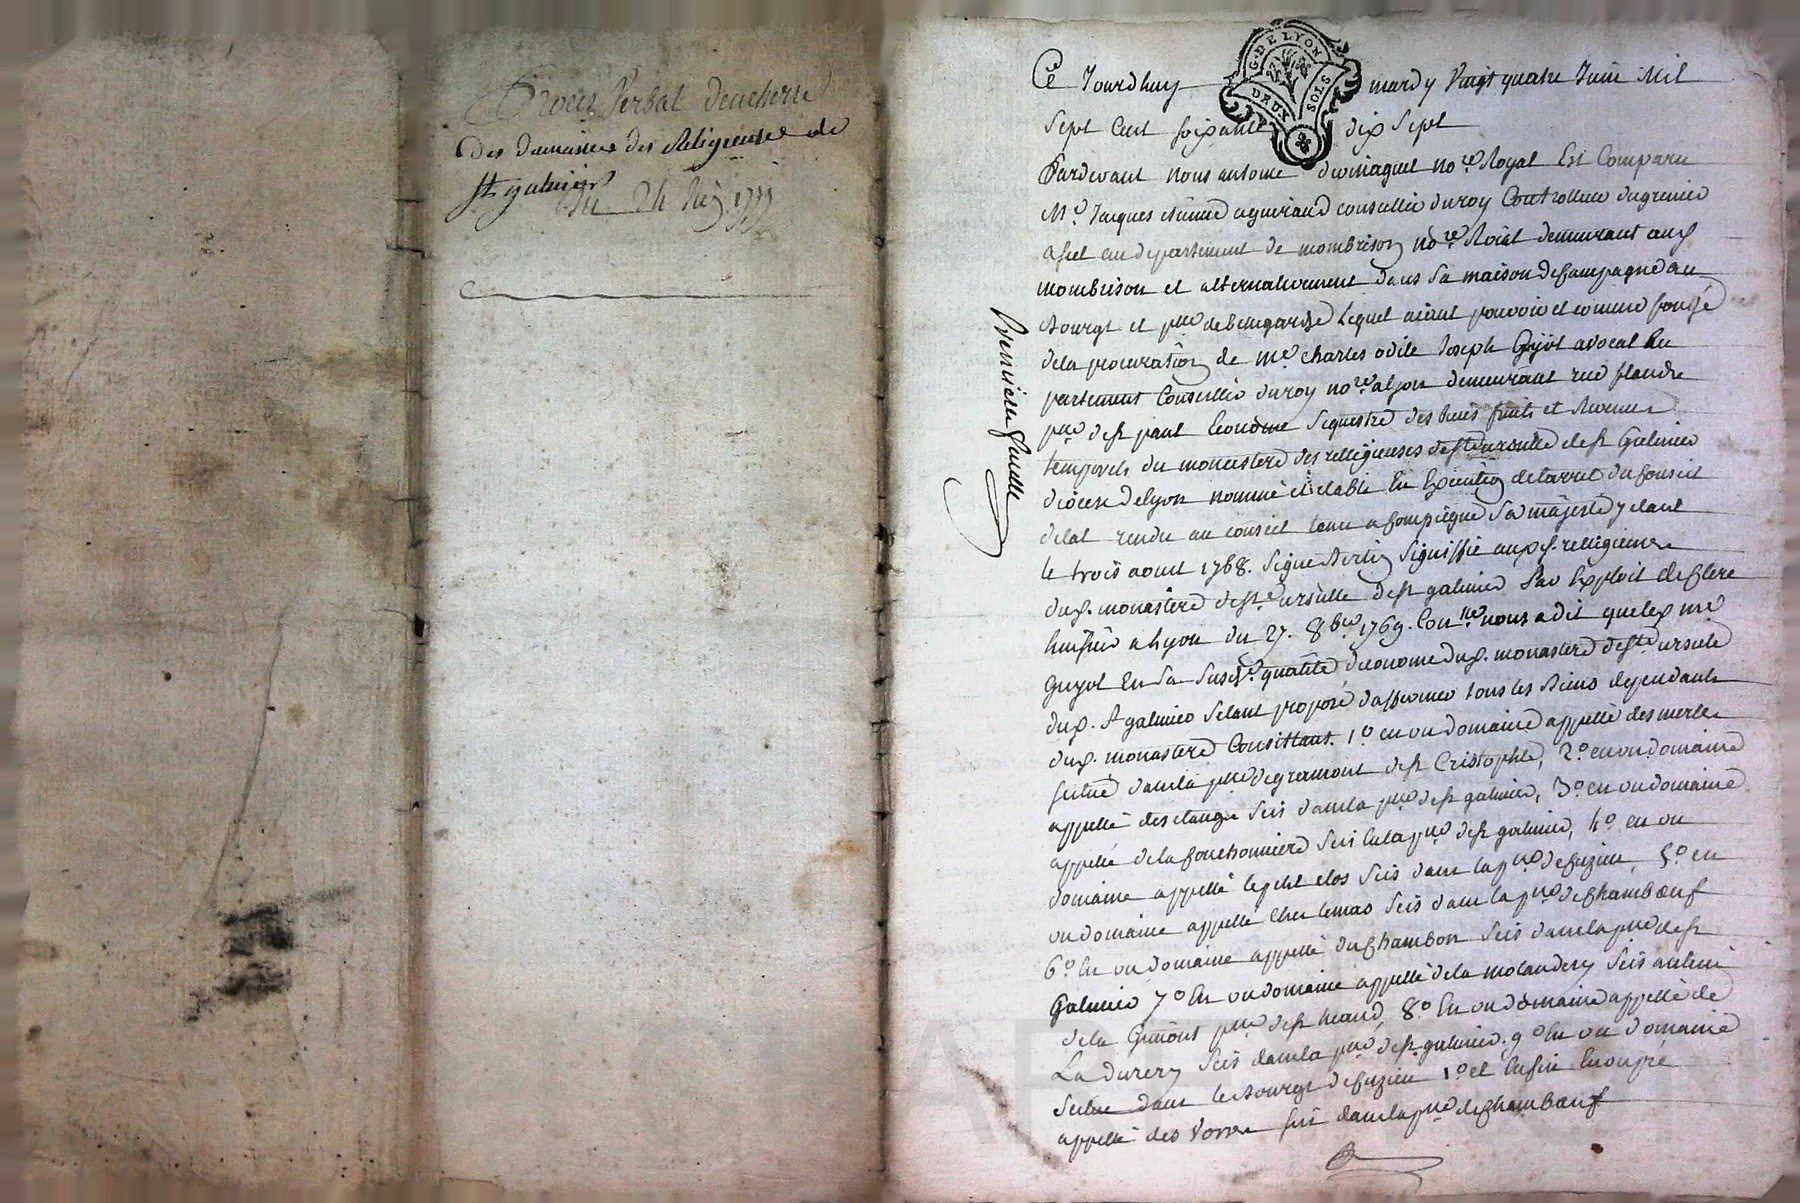 Procès Verbal denchere
Des domaines des Religieuses de
St galmier
du 24 Juin 1777
G. DE LYON
DEUX SOLS
Ce Jourdhuy mardy Vingt quatre Juin Mil
Sept Cent soixante dix Sept
Pardevant nous antoine no.re Royal Est Comparu
M.e Jacques etienne conseiller du roy Controlleur du grenier
a sel au departement de mombrison no.re Roial demeurant aud.
mombrison et alternativement dans sa maison de Campagne au
Bourgt et p.sse de Bellegarde Lequel aiant pouvoir et comme fondé
de la procuration de me. charles odile Joseph Guyot avocat En
parlement Conseiller du roy no.re a lyon demeurant rue flandre
p.sse de st paul Econome Sequestre des biens fruits et Revenus
temporels du monastere des relligieuses de ste ursulle de st Galmier
diocese de lyon nommé et etabli En Execution de l'arret du Conseil
detat rendu au conseil tenu a Compiegne Sa majesté y etant
le trois aoust 1768. Signé Bertin Signiffié auxd. relligieuses
dud. monastere de ste ursulle de st galmier Par Exploit de Clere
huissier a Lyon du 27. 8bre 1769. Con.lle nous a dit que led. me
Guyot En sa susd.e qualité deconome dud. monastere de ste ursule
dud. St galmier setant proposé daffermer tous les Biens dependants
dud. monastere Consistant. 1.o en un domaine appellé des merles
scitué dans la p.sse de gramont de st Cristophle, 2.o en un domaine
appellé des etangs Scis dans la p.sse de st galmier, 3.o en un domaine
appellé de la fouchonniere Scis en la p.sse de st galmier, 4.o en un
domaine appellé le petit clos Scis dans la p.sse de Cuzieu 5.o en
un domaine appellé Cher lemas Scis dans la p.sse de Chambœuf
6.o En un domaine appellé du Chambon Scis dans la p.sse de st
Galmier 7.o En un domaine appellé de la molandery Scis au lieu
de la Gimont p.sse de st heand, 8.o En un domaine appellé de
La durery Scis dans la p.sse de st galmier. 9.o En un domaine
Scitué dans le Bourgt de Cuzieu 1.o et Enfin En un pré
appellé des Vorres sis dans la p.sse de Chambœuf